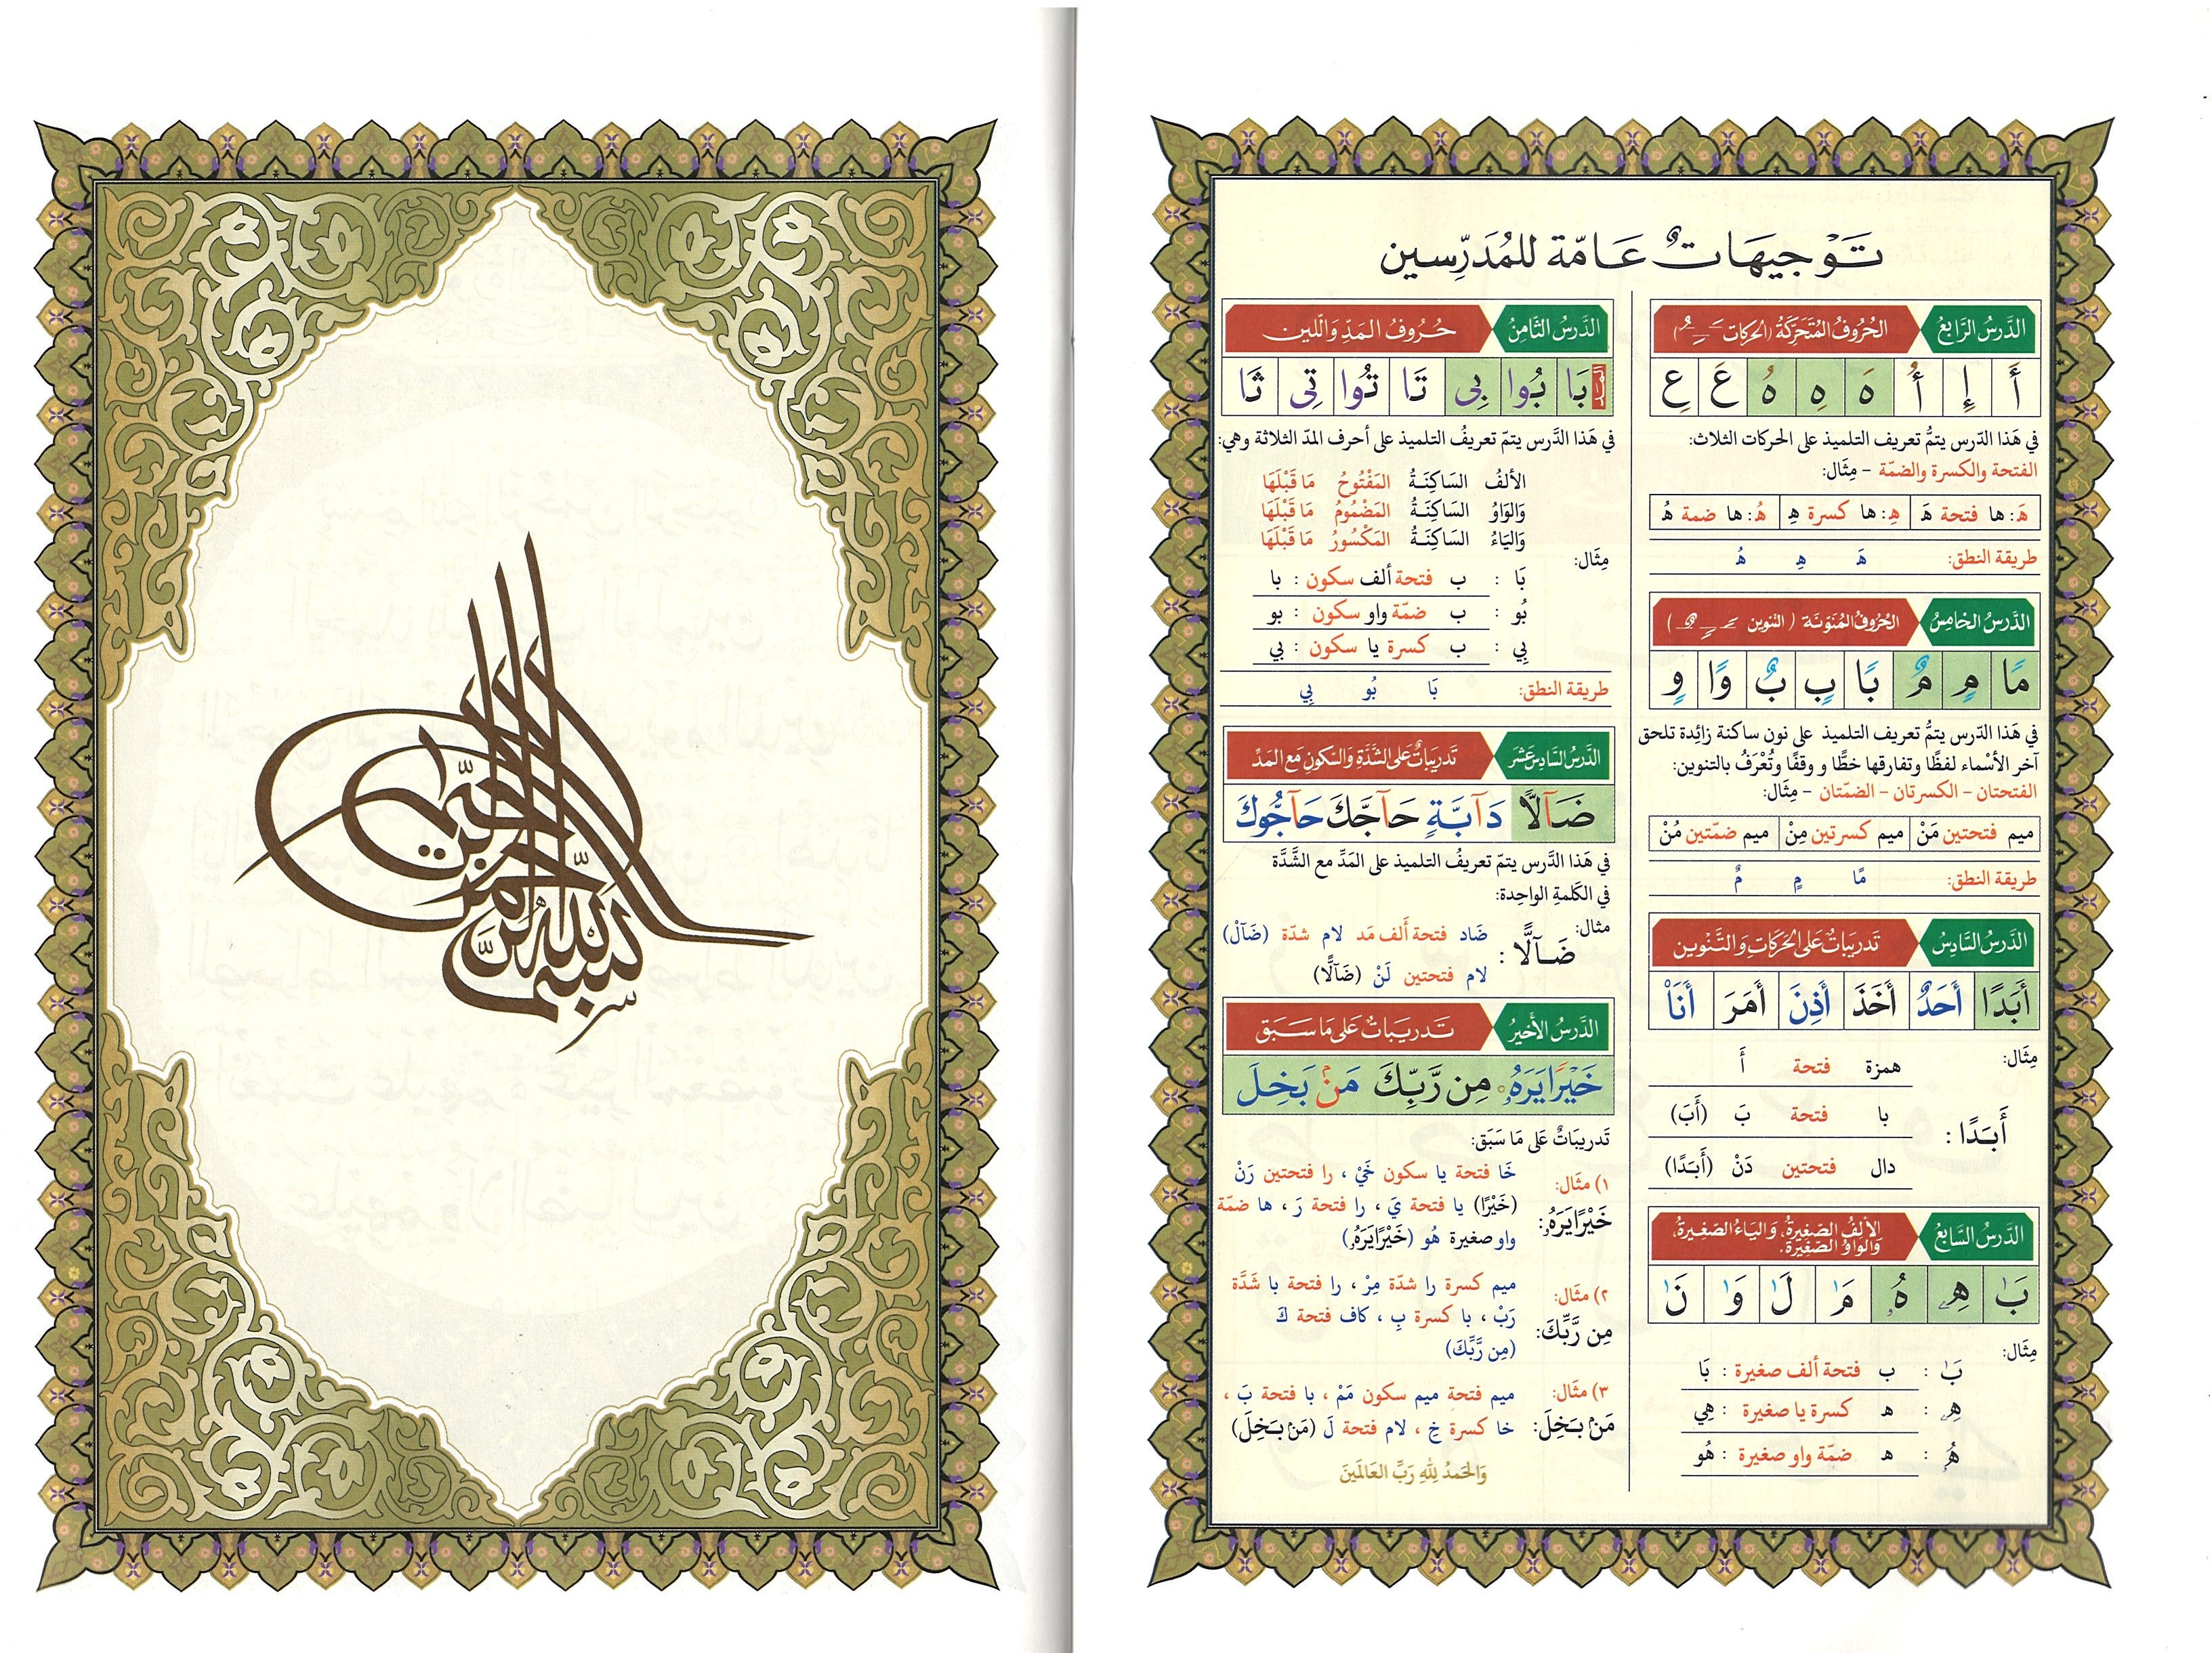 تَوْجِيهَاتٌ عَامّة للمُدَرِّسين
الدَّرسُ الرَّابعُ
الحُرُوفُ المُتَحَرِّكَةُ (الحركات ـَـِـُ)
أَ إِ أُ هَ هِ هُ عَ عِ
في هَذا الدّرس يتمُّ تعريف التلميذ على الحركات الثلاث:
الفتحة والكسرة والضمّة – مِثَال:
هَ: ها فتحة هَ هِ: ها كسرة هِ هُ: ها ضمة هُ
طريقة النطق: هَ هِ هُ
الدَّرسُ الخامِسُ
الحُرُوفُ المُنَوّنَة (التنوين ـًـٍـٌ)
مًا مٍ مٌ بًا بٍ بٌ وًا وٍ
في هَذا الدّرس يتمُّ تعريف التلميذ على نون ساكنة زائِدة تلحق
آخر الأسْماء لفظًا وتفارقها خطًّا و وقفًا وتُعْرَفُ بالتنوين:
الفتحتان – الكسرتان – الضمّتان – مِثَال:
ميم فتحتين مَنْ ميم كسرتين مِنْ ميم ضمّتين مُنْ
طريقة النطق: مًا مٍ مٌ
الدَّرسُ السَّادِسُ
تَدريبَاتٌ عَلى الحَرَكَاتِ وَالتَّنْوين
أَبَدًا أَحَدٌ أَخَذَ أَذِنَ أَمَرَ أَنَا۠
مِثَال:
أَبَدًا :
همزة فتحة أَ
با فتحة بَ (أَبَ)
دال فتحتين دَنْ (أَبَدًا)
الدَّرسُ السَّابعُ
الألِفُ الصّغِيرةُ، وَاليَاءُ الصّغِيرةُ،
وَالوَاوُ الصّغِيرَةُ.
بَٰ هِۦ هُۥ مَٰ لَٰ وَٰ نَٰ
مِثَال:
بَٰ : ب فتحة ألف صغيرة : بَا
هِۦ : هـ كسرة يا صغيرة : هِي
هُۥ : هـ ضمّة واو صغيرة : هُو
الدَّرسُ الثَّامنُ
حُرُوفُ المَدِّ وَاللّين
المد بَا بُوا بِي تَا تُوا تِي ثَا
في هَذا الدَّرس يتمّ تعريفُ التلميذ على أحرف المدّ الثلاثة وهي:
الألفُ السَاكِنَـةُ المَفْتُوحُ مَا قَبْلَهَا
وَالوَاوُ السَاكِنَـةُ المَضْمُومُ مَا قَبْلَهَا
وَاليَاءُ السَاكِنَـةُ المَكْسُورُ مَا قَبْلَهَا
مِثَال:
بَا : ب فتحة ألف سكون : با
بُو : ب ضمّة واو سكون : بو
بِي : ب كسرة يا سكون : بي
طريقة النطق: بَا بُو بِي
الدَّرسُ السَّادِسَ عَشَرَ
تَدريبَاتٌ عَلى الشَّدَّةِ وَالسّكونِ مَع المَدِّ
ضَآلًّا دَآبَّةٍ حَآجَّكَ حَآجُّوكَ
في هَذا الدَّرس يتمّ تعريفُ التلميذ على المَدِّ مع الشَّدَّة
في الكَلمةِ الواحِدة:
مثال:
ضَـآلًّا :
ضَاد فتحة ألف مَد لام شدّة (ضَآلّ)
لام فتحتين لَنْ (ضَآلًّا)
الدَّرسُ الأَخيرُ
تَـدريبَاتٌ عَلى مَا سَـبَق
خَيْرًا يَرَهُۥ مِن رَّبِّكَ مَنۢ بَخِلَ
تَدريبَاتٌ عَلى مَا سَبَق:
١) مثال:
خَيْرًا يَرَهُۥ:
خَا فتحة يا سكون خَيْ ، را فتحتين رَنْ
(خَيْرًا) يا فتحة يَ ، را فتحة رَ ، ها ضمّة
واو صغيرة هُو (خَيْرًا يَرَهُۥ)
٢) مثال:
مِن رَّبِّكَ:
ميم كسرة را شدّة مِرْ ، را فتحة با شَدَّة
رَبْ ، با كسرة بِ ، كاف فتحة كَ
(مِن رَّبِّكَ)
٣) مثال:
مَنۢ بَـخِلَ:
ميم فتحة ميم سكون مَمْ ، با فتحة بَ ،
خا كسرة خِ ، لام فتحة لَ (مَنۢ بَـخِلَ)
وَالحَمدُ لِلّهِ رَبِّ العَالَمين
بسم الله الرحمن الرحيم